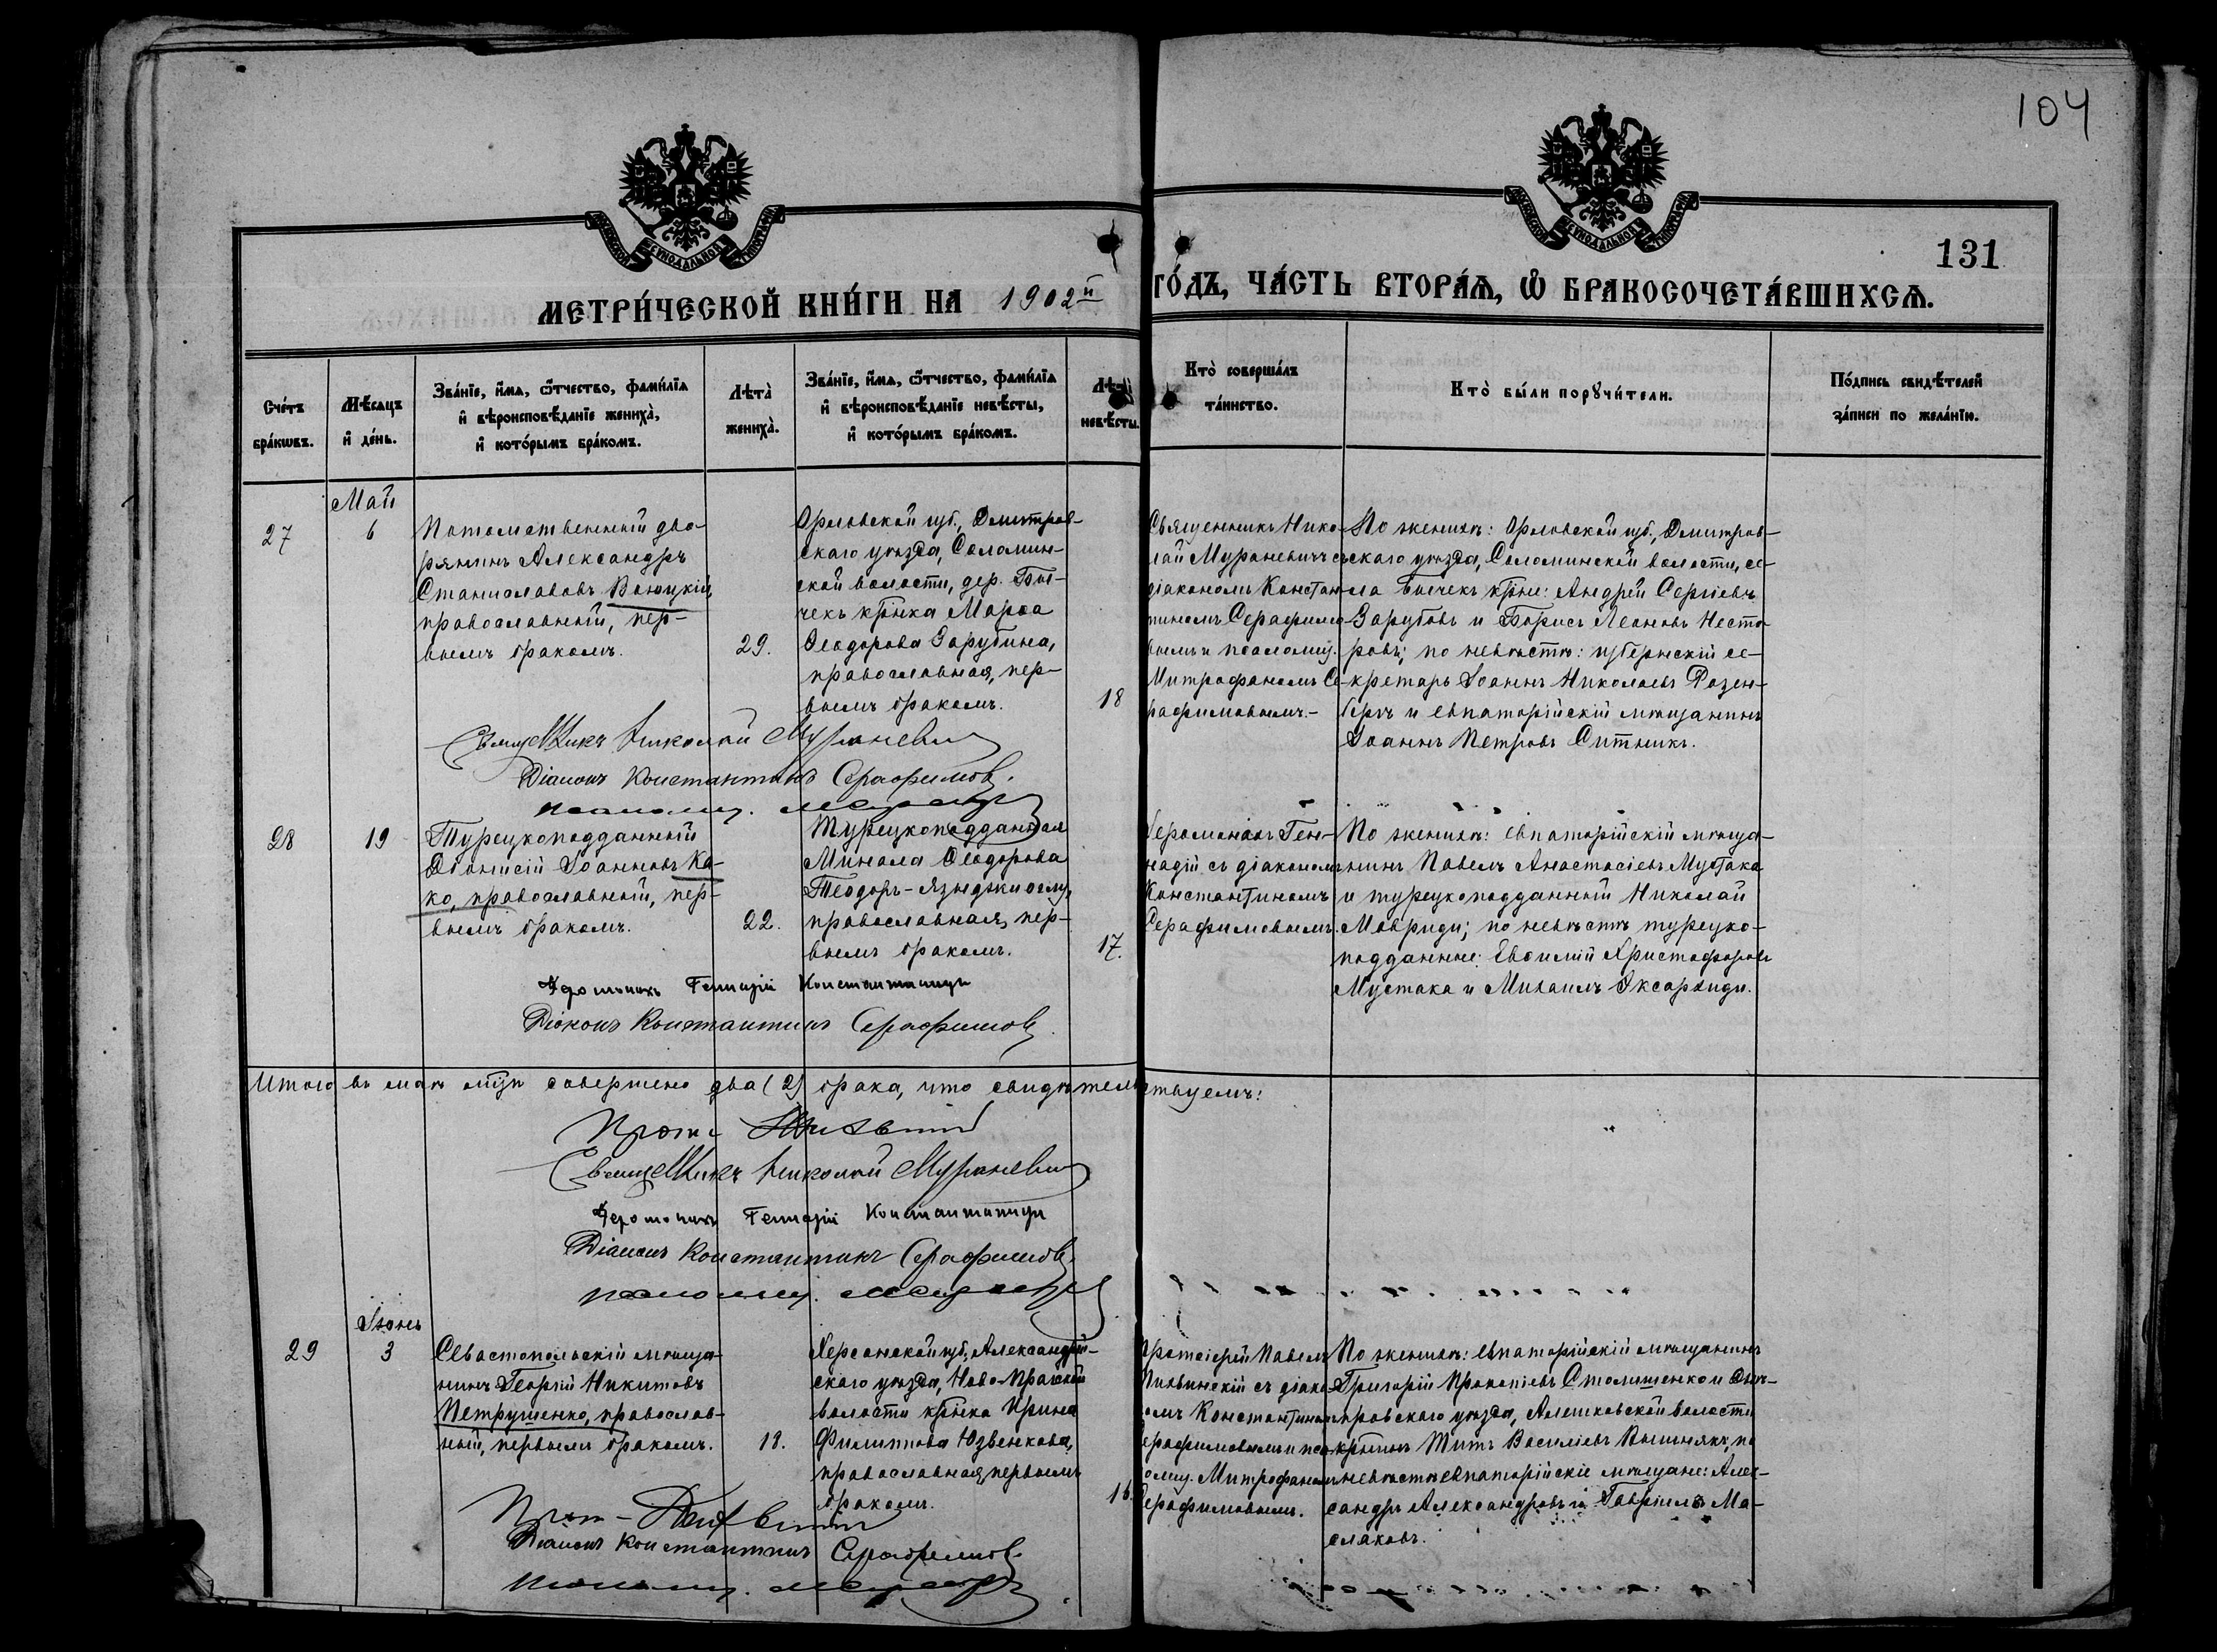 104
131
МОСКОВСКОЙ СѴНОДАЛЬНОЙ ТИПОГРАФІИ
МОСКОВСКОЙ СѴНОДАЛЬНОЙ ТИПОГРАФІИ
МЕТРИ́ЧЕСКОЙ КНИ́ГИ НА 1902й ГО́ДЪ, ЧА́СТЬ ВТОРА́Ѧ, Ѡ БРАКОСОЧЕТА́ВШИХСѦ.
Сче́тъ
бра́кѡвъ.
Мѣ́сѧцъ
и҆ де́нь.
Зва́нїе, и҆́мѧ, ѻ҆́тчество, фами́лїѧ
и҆ вѣроисповѣ́данїе жениха̀,
и҆ кото́рымъ бра́комъ.
Лѣта̀
жениха̀.
Зва́нїе, и҆́мѧ, ѻ҆́тчество, фами́лїѧ
и҆ вѣроисповѣ́данїе невѣ́сты,
и҆ кото́рымъ бра́комъ.
Лѣта̀
невѣ́сты.
Кто̀ соверша́лъ
та́инство.
Кто̀ бы́ли порꙋчи́тели.
По́дпись свидѣ́телей
за́писи по жела́нїю.
27
Май
6
Потомственный дво-
рянинъ Александръ
Станиславовъ
православный, пер-
вымъ бракомъ.
29.
Орловской губ., Дмитров-
скаго уѣзда, Соломин-
ской волости, дер. Бы-
чекъ кр̄нка Марѳа
Ѳеодорова Зарубина,
православная, пер-
вымъ бракомъ.
18
Священникъ Нико-
лай Мураневичъ съ
діакономъ Констан-
тиномъ Серафимо-
вымъ и псаломщ.
Митрофаномъ Се-
рафимовымъ.-
По женихѣ: Орловской губ., Дмитров-
скаго уѣзда, Соломинской волости, се-
ла Бычекъ кр̄не: Андрей Сергіевъ
Зарубовъ и Борисъ Леоновъ Несте-
ровъ; по невѣстѣ: губернскій се-
кретарь Іоаннъ Николаевъ Розен-
бергъ и евпаторійскій мѣщанинъ
Іоаннъ Петровъ Ситникъ.
Священникъ Николай Мураневичъ
Діаконъ Константинъ Серафимовъ.
28
19
Турецкоподданный
Діонисій Іоанновъ Ка-
ко, православный, пер-
вымъ бракомъ.
22.
Турецкоподданная
Минола Ѳеодорова
Теодоръ-Языджи оглу,
православная, пер-
вымъ бракомъ.
17.
Іеромонахъ Ген-
надій съ діакономъ
Константиномъ
Серафимовымъ.
По женихѣ: евпаторійскій мѣща-
нинъ Павелъ Анастасіевъ Мустака
и турецкоподданный Николай
Мавриди; по невѣстѣ турецко-
подданные: Евѳимій Христофоровъ
Мустака и Михаилъ
Іеромонахъ Геннадій
Діаконъ Константинъ Серафимовъ
Итого въ маѣ м̄цѣ совершено два (2) брака, что свидѣтельствуемъ:
Священникъ Николай Мураневичъ
Іеромонахъ Геннадій
Діаконъ Константинъ Серафимовъ.
29
Іюнь
3
Севастопольскій мѣща-
нинъ Георгій Никитовъ
Петрушенко, православ-
ный, первымъ бракомъ.
18.
Херсонской губ., Александрій-
скаго уѣзда, Ново-Пражской
волости кр̄нка Ирина
Филиппова Юзвенкова,
православная, первымъ
бракомъ.
16.
Протоіерей Павелъ
съ діако-
номъ Константиномъ
Серафимовымъ и пса-
ломщ. Митрофаномъ
Серафимовымъ.
По женихѣ: евпаторійскій мѣщанинъ
Григорій Прокопіевъ Столишенко и Днѣ-
провскаго уѣзда, Алешковской волости
кр̄нинъ Титъ Василіевъ Вишнякъ; по
невѣстѣ евпаторійскіе мѣщане: Алек-
сандръ Александровъ и Гавріилъ Ма-
слаковъ.
Діаконъ Константинъ Серафимовъ.